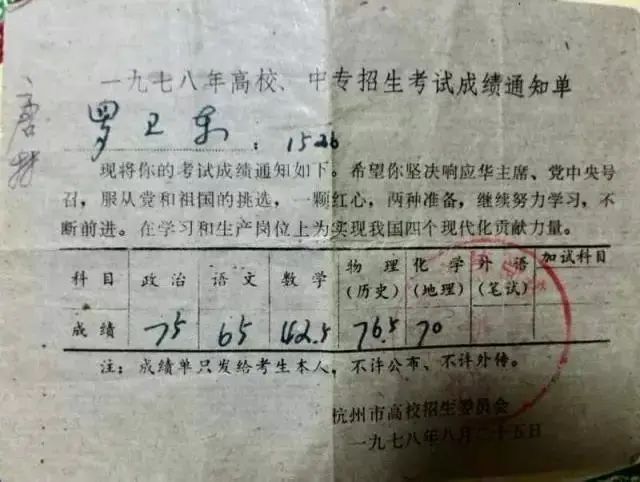 一九七八年高校、中专招生考试成绩通知单
罗卫东：1526
现将你的考试成绩通知如下。希望你坚决响应华主席、党中央号
召，服从党和祖国的挑选，一颗红心，两种准备，继续努力学习，不
断前进。在学习和生产岗位上为实现我国四个现代化贡献力量。
科目 政治 语文 数学 物理(历史) 化学(地理) 外语(笔试) 加试科目
成绩 75 65 42.5 76.5 70
注：成绩单只发给考生本人，不许公布、不许外传。
杭州市高校招生委员会
一九七八年八月二十五日